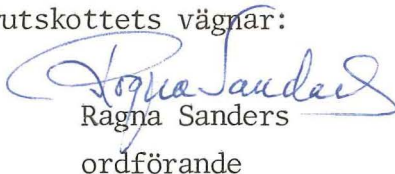 utskottets vägnar:
Ragna Sanders
Ragna Sanders
ordförande